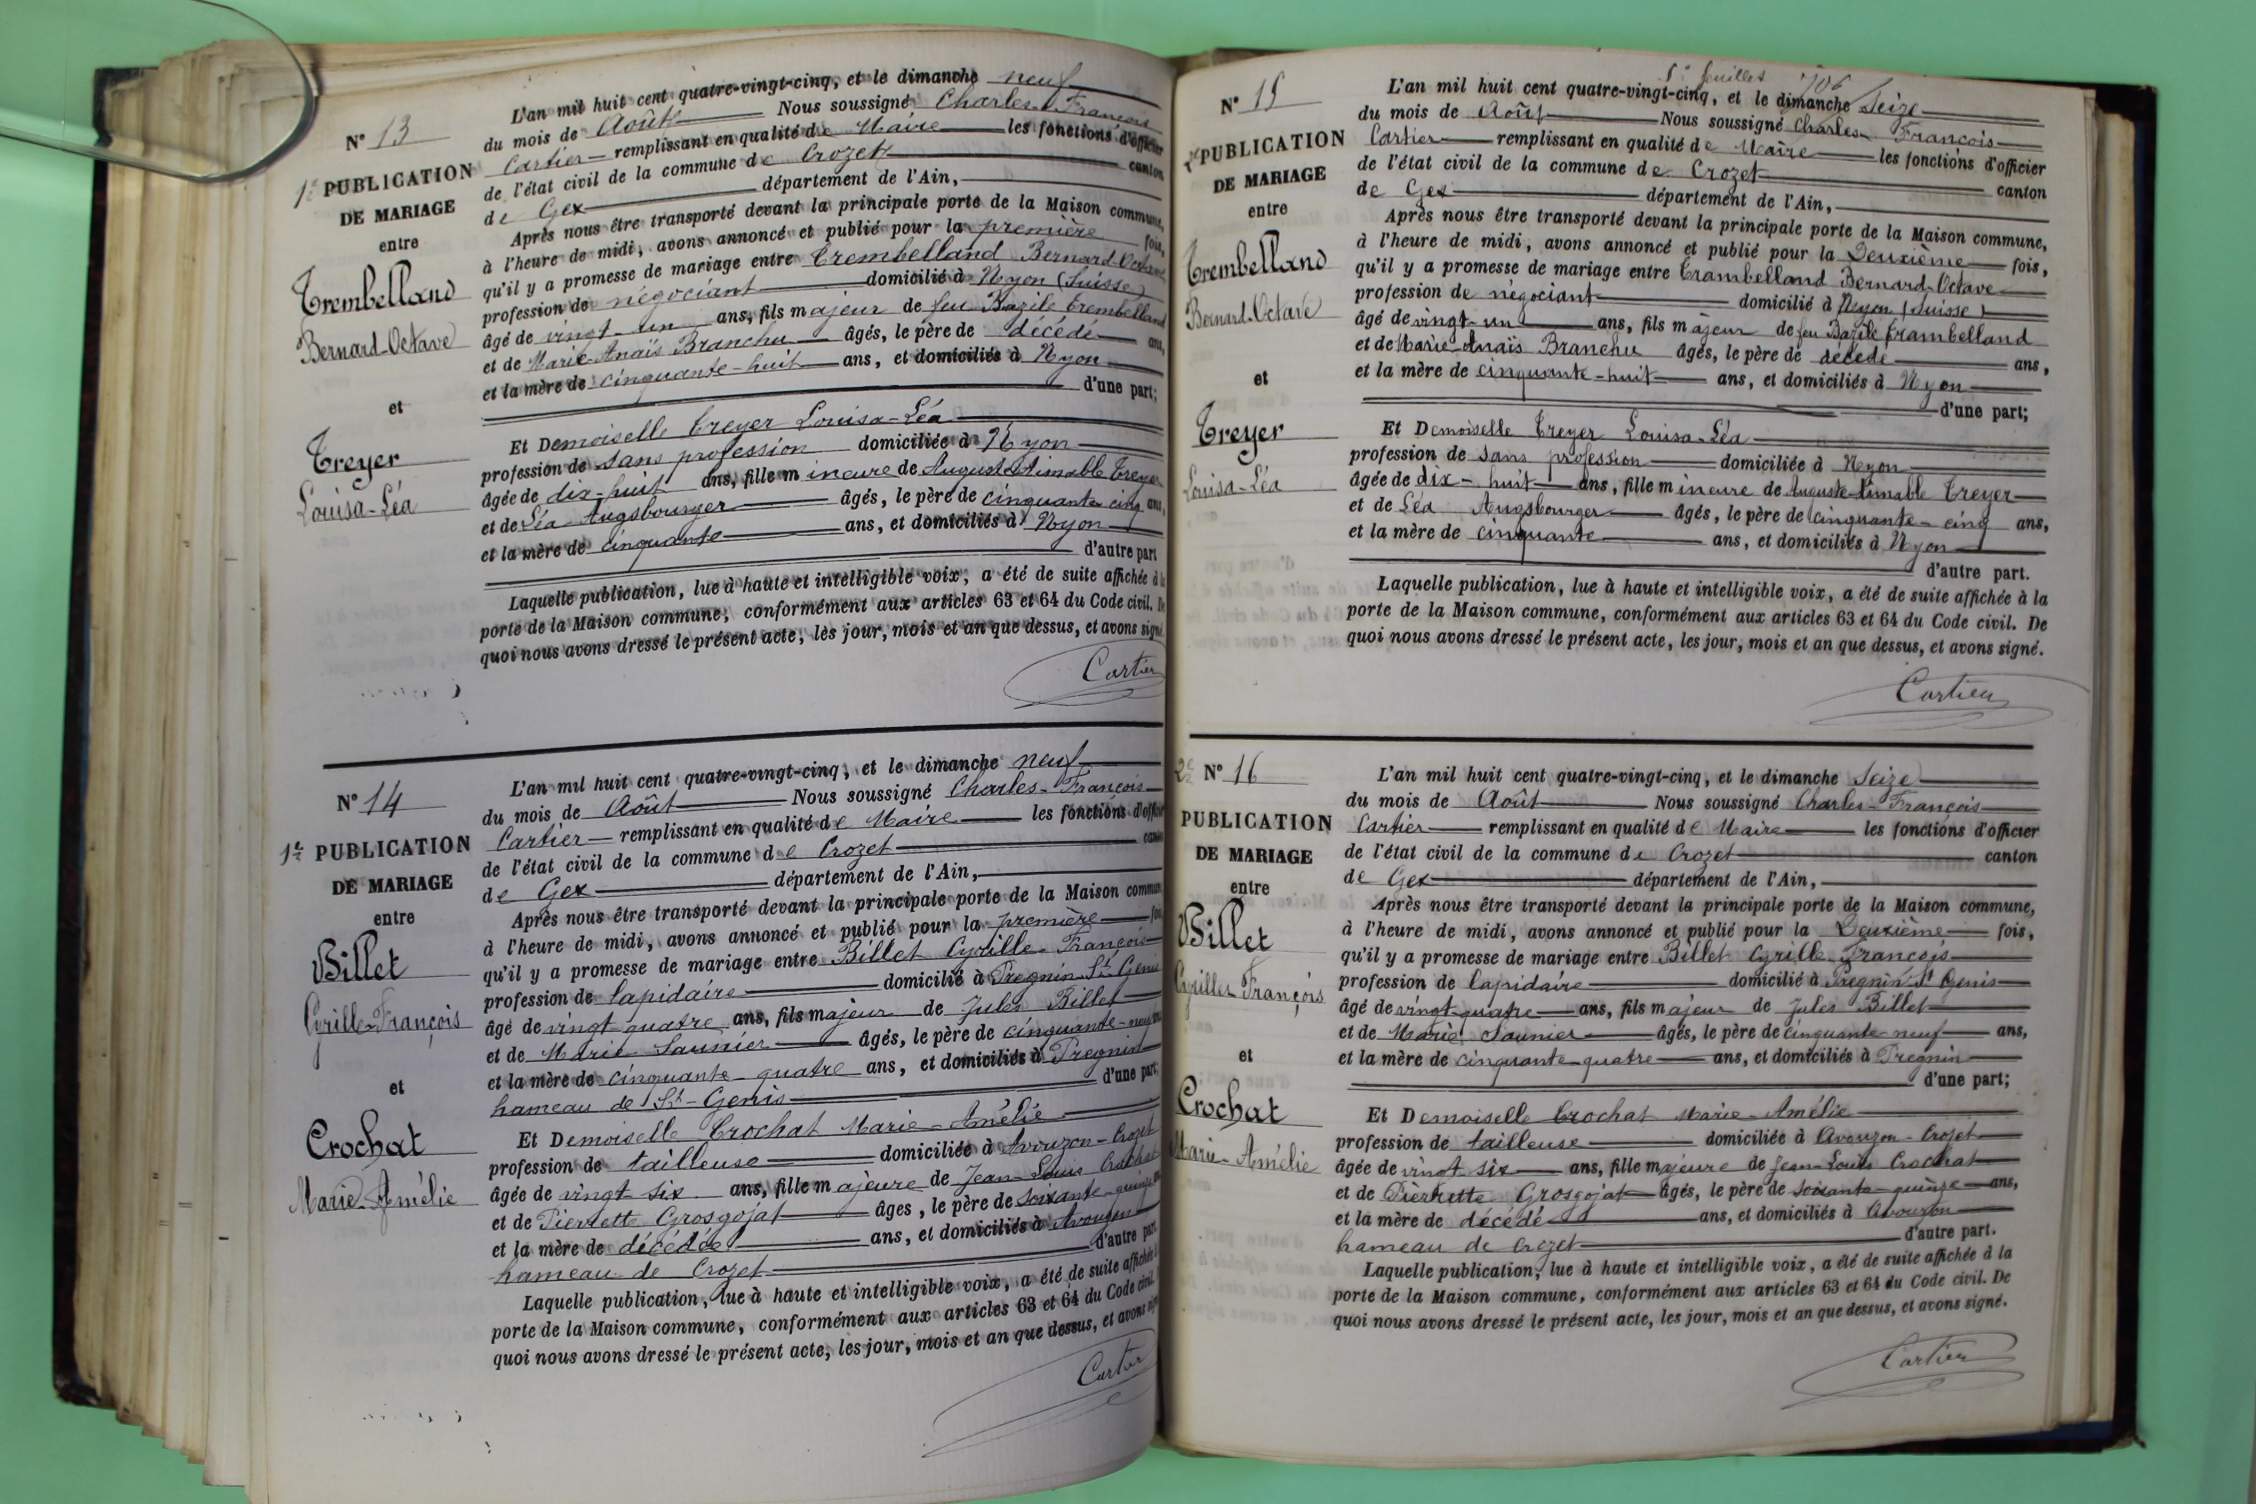 N° 13
1re PUBLICATION
DE MARIAGE
entre
Trembelland
Bernard-Octave
et
Treyer
Louisa-Léa
L'an mil huit cent quatre-vingt-cinq, et le dimanche neuf
du mois de Août Nous soussigné Charles François
Cartier remplissant en qualité de Maire les fonctions d'officier
de l'état civil de la commune de Crozet canton
de Gex département de l'Ain,
Après nous être transporté devant la principale porte de la Maison commune,
à l'heure de midi, avons annoncé et publié pour la première fois,
qu'il y a promesse de mariage entre Trembelland Bernard-Octave
profession de négociant domicilié à Nyon (Suisse)
âgé de vingt-un ans, fils majeur de feu Bazile Trembelland
et de Marie-Anaïs Branchu âgés, le père de décédé ans,
et la mère de cinquante-huit ans, et domiciliés à Nyon
d'une part;
Et Demoiselle Treyer Louisa-Léa
profession de sans profession domiciliée à Nyon
âgée de dix-huit ans, fille mineure de Auguste-Aimable Treyer
et de Léa Augsbourger âgés, le père de cinquante cinq ans,
et la mère de cinquante ans, et domiciliés à Nyon
d'autre part
Laquelle publication, lue à haute et intelligible voix, a été de suite affichée à la
porte de la Maison commune, conformément aux articles 63 et 64 du Code civil. De
quoi nous avons dressé le présent acte, les jour, mois et an que dessus, et avons signé
Cartier
N° 14
1re PUBLICATION
DE MARIAGE
entre
Billet
Cyrille-François
et
Crochat
Marie-Amélie
L'an mil huit cent quatre-vingt-cinq, et le dimanche neuf
du mois de Août Nous soussigné Charles-François
Cartier remplissant en qualité de Maire les fonctions d'officier
de l'état civil de la commune de Crozet canton
de Gex département de l'Ain,
Après nous être transporté devant la principale porte de la Maison commune
à l'heure de midi, avons annoncé et publié pour la première fois
qu'il y a promesse de mariage entre Billet Cyrille-François
profession de lapidaire domicilié à Pregnin-St Genis
âgé de vingt quatre ans, fils majeur de Jules Billet
et de Marie Saunier âgés, le père de cinquante-neuf
et la mère de cinquante-quatre ans, et domiciliés à Pregnin
hameau de St-Genis d'une part
Et Demoiselle Crochat Marie-Amélie
profession de tailleuse domiciliée à Avouzon-Crozet
âgée de vingt six ans, fille majeure de Jean-Louis Crochat
et de Pierrette Grosgojat âges, le père de soixante-quinze
et la mère de décédée ans, et domiciliés à Avouzon
hameau de Crozet d'autre part
Laquelle publication, lue à haute et intelligible voix, a été de suite affichée à
porte de la Maison commune, conformément aux articles 63 et 64 du Code civil.
quoi nous avons dressé le présent acte, les jour, mois et an que dessus, et avons signé
Cartier
5e feuillet 706
N° 15
2e PUBLICATION
DE MARIAGE
entre
Trembelland
Bernard-Octave
et
Treyer
Louisa-Léa
L'an mil huit cent quatre-vingt-cinq, et le dimanche Seize
du mois de Août Nous soussigné Charles François
Cartier remplissant en qualité de Maire les fonctions d'officier
de l'état civil de la commune de Crozet canton
de Gex département de l'Ain,
Après nous être transporté devant la principale porte de la Maison commune,
à l'heure de midi, avons annoncé et publié pour la Deuxième fois,
qu'il y a promesse de mariage entre Trambelland Bernard-Octave
profession de négociant domicilié à Nyon (Suisse)
âgé de vingt-un ans, fils majeur de feu Bazile Trambelland
et de Marie-Anaïs Branchu âgés, le père de décédé ans,
et la mère de cinquante-huit ans, et domiciliés à Nyon
d'une part;
Et Demoiselle Treyer Louisa-Léa
profession de sans profession domiciliée à Nyon
âgée de dix-huit ans, fille mineure de Auguste-Aimable Treyer
et de Léa Augsbourger âgés, le père de cinquante-cinq ans,
et la mère de cinquante ans, et domiciliés à Nyon
d'autre part.
Laquelle publication, lue à haute et intelligible voix, a été de suite affichée à la
porte de la Maison commune, conformément aux articles 63 et 64 du Code civil. De
quoi nous avons dressé le présent acte, les jour, mois et an que dessus, et avons signé.
Cartier
2e N° 16
PUBLICATION
DE MARIAGE
entre
Billet
Cyrille François
et
Crochat
Marie-Amélie
L'an mil huit cent quatre-vingt-cinq, et le dimanche Seize
du mois de Août Nous soussigné Charles-François
Cartier remplissant en qualité de Maire les fonctions d'officier
de l'état civil de la commune de Crozet canton
de Gex département de l'Ain,
Après nous être transporté devant la principale porte de la Maison commune,
à l'heure de midi, avons annoncé et publié pour la Deuxième fois,
qu'il y a promesse de mariage entre Billet Cyrille François
profession de lapidaire domicilié à Pregnin St Genis
âgé de vingt-quatre ans, fils majeur de Jules Billet
et de Marie Saunier âgés, le père de cinquante-neuf ans,
et la mère de cinquante-quatre ans, et domiciliés à Pregnin
d'une part;
Et Demoiselle Crochat Marie-Amélie
profession de tailleuse domiciliée à Avouzon-Crozet
âgée de vingt six ans, fille majeure de Jean-Louis Crochat
et de Pierrette Grosgojat âgés, le père de soixante-quinze ans,
et la mère de décédée ans, et domiciliés à Avouzon
hameau de Crozet d'autre part.
Laquelle publication, lue à haute et intelligible voix, a été de suite affichée à la
porte de la Maison commune, conformément aux articles 63 et 64 du Code civil. De
quoi nous avons dressé le présent acte, les jour, mois et an que dessus, et avons signé.
Cartier